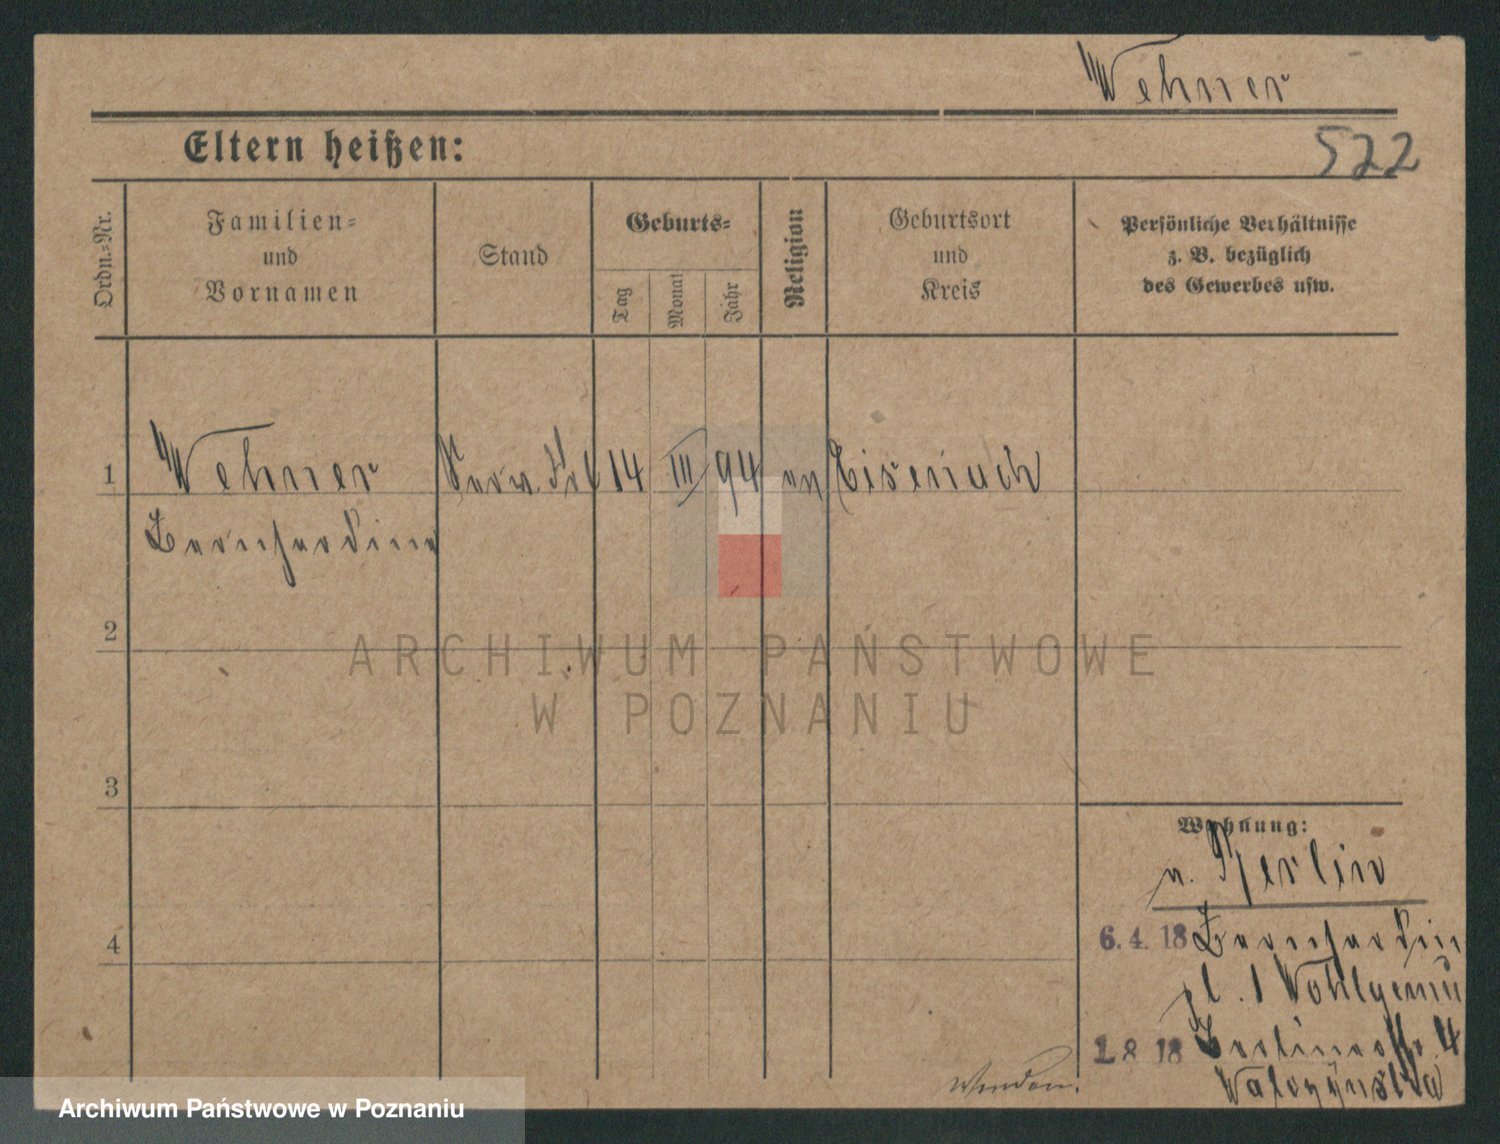 Wehner
Eltern heißen:
522
Ordn.-Nr.
Familien-
und
Vornamen
Stand
Geburts-
Tag
Monat
Jahr
Religion
Geburtsort
und
Kreis
Persönliche Verhältnisse
z. B. bezüglich
des Gewerbes usw.
1 Wehner 14 III 94 Eisenach
Bernhardine
2
ARCHIWUM PAŃSTWOWE
W POZNANIU
3
4
Wohnung:
n. Berlin
6.4.18 Bernhardin
pl. 1 Wohlgemu
1.8.18 Berlinerstr. 4
Wenden.
Archiwum Państwowe w Poznaniu